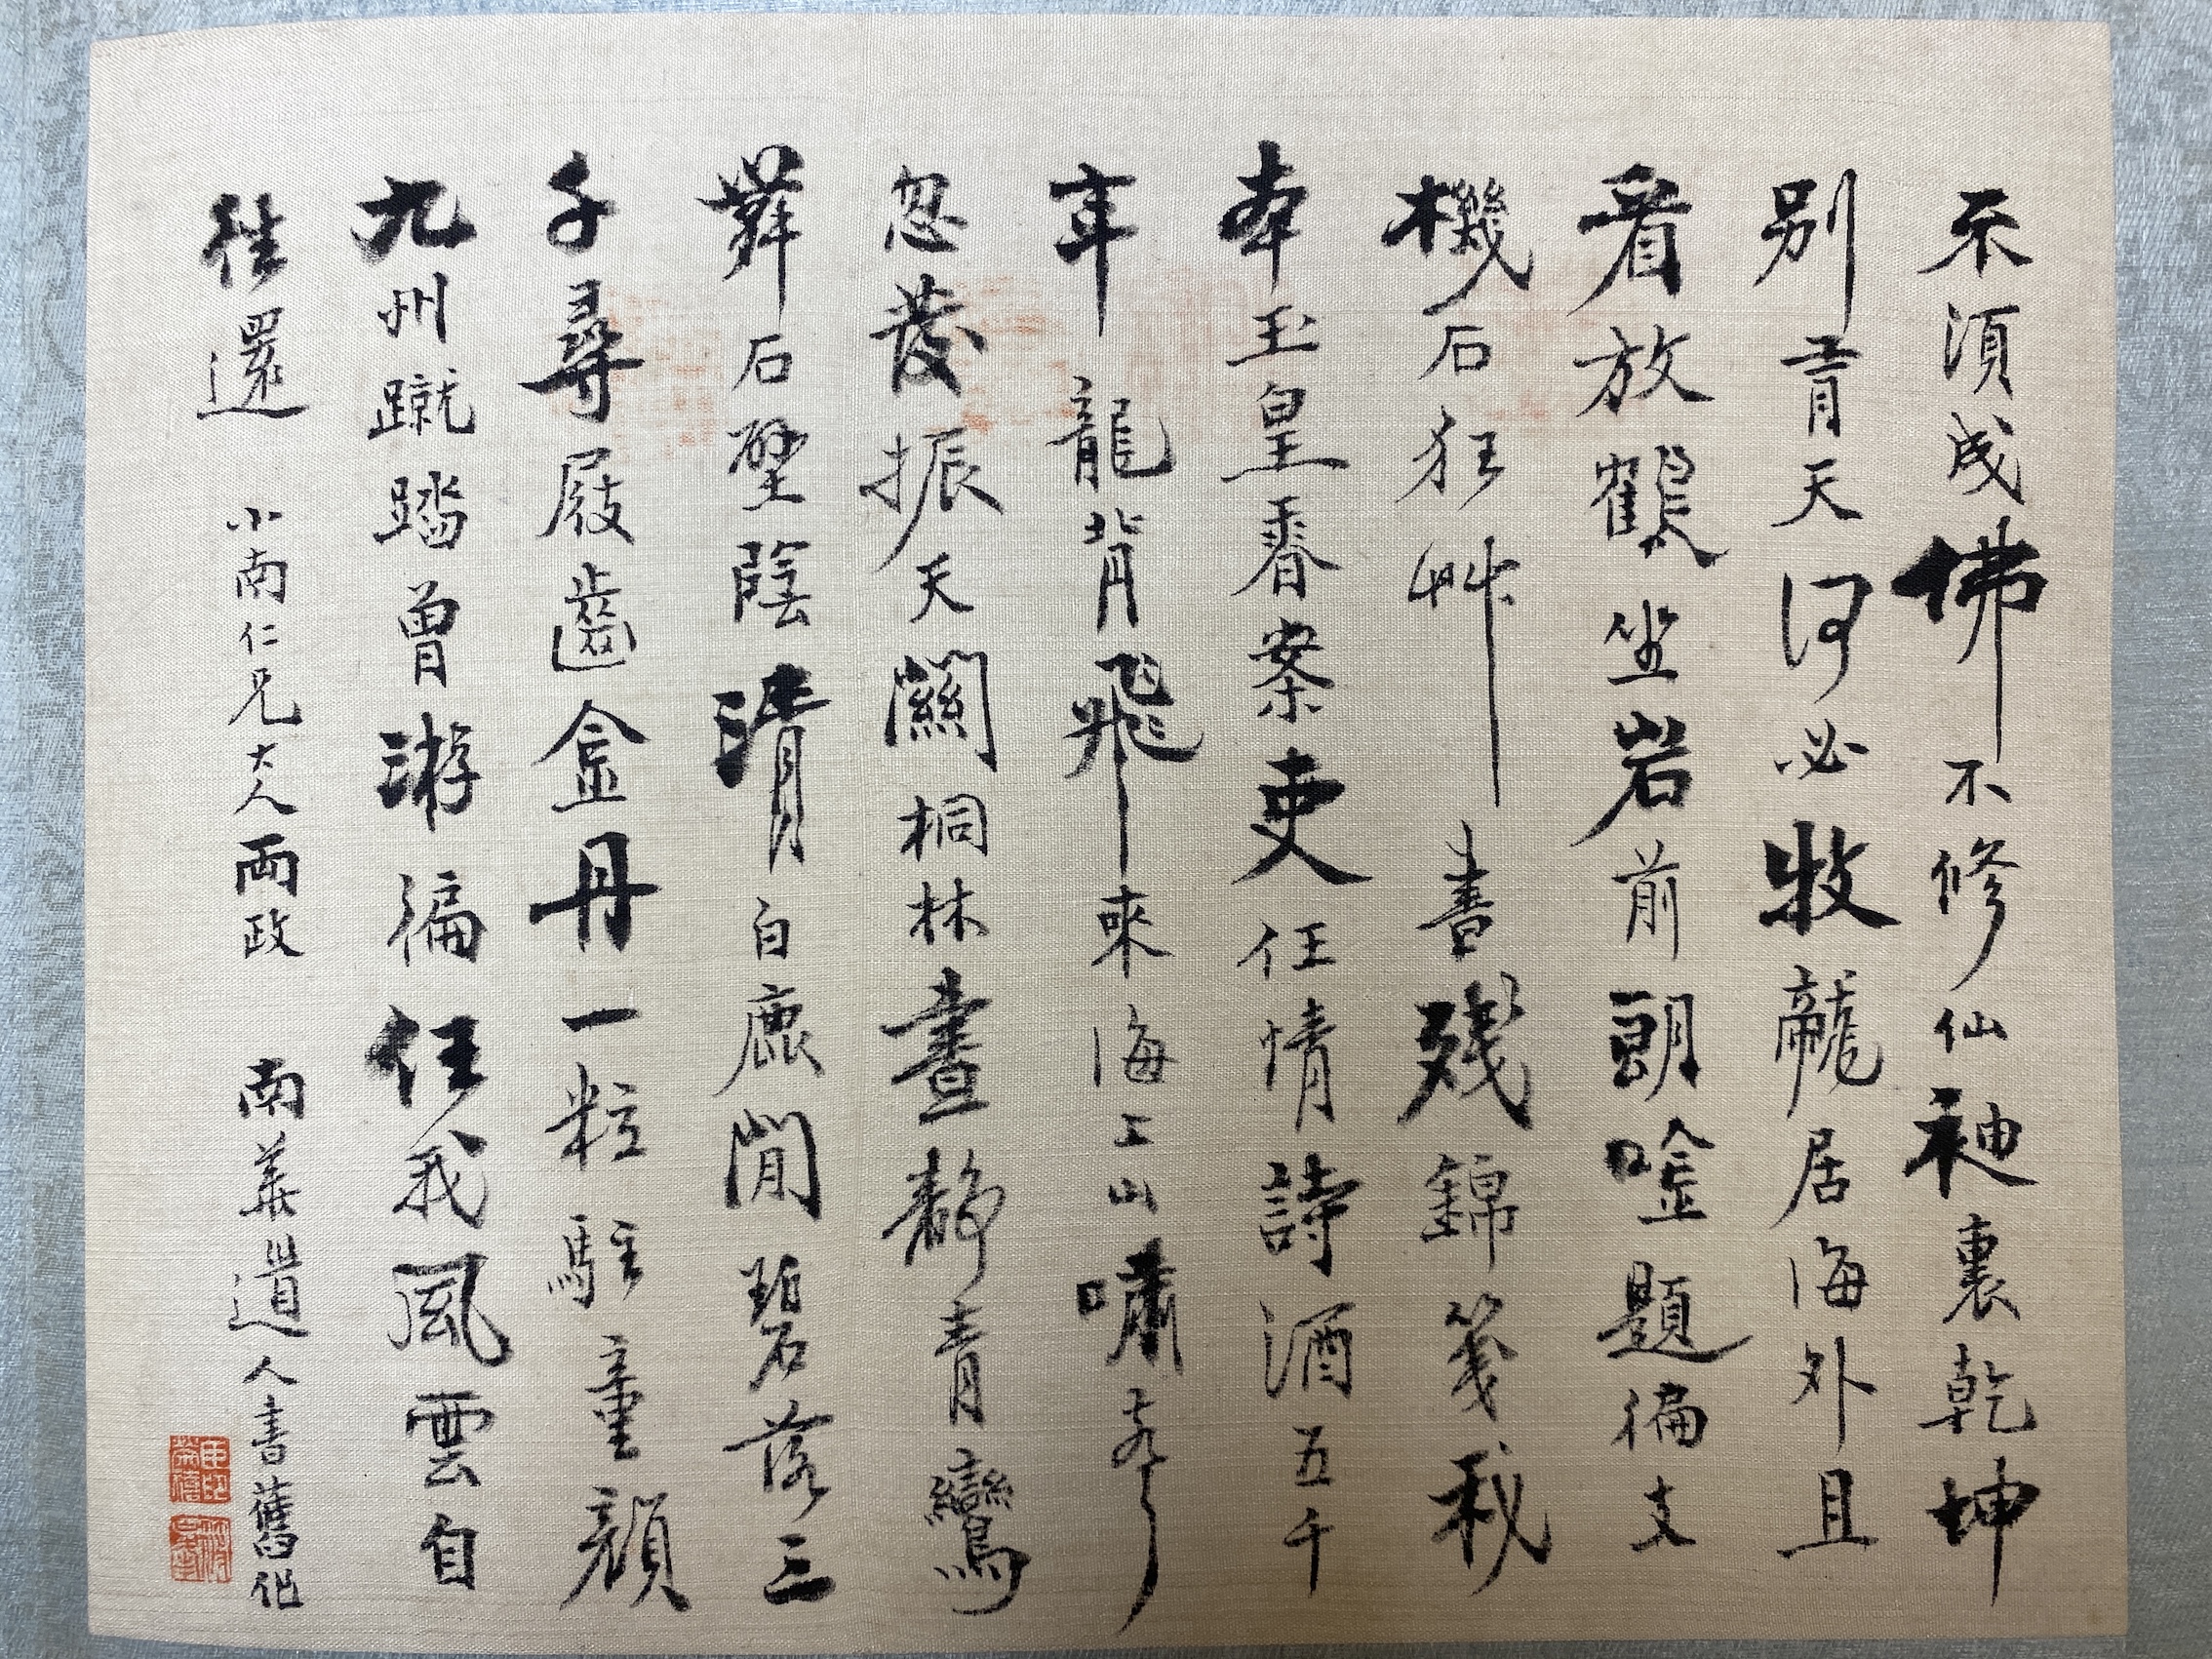 不須成佛不修仙袖裏乾坤
別有天何必牧龍居海外且
看放鶴坐岩前朗唫題徧支
機石狂艸書殘錦箋我
本玉皇香案吏任情詩酒五千
年龍背飛來海上山嘯聲
忽發振天關桐林晝靜青鸞
舞石壁陰清白鹿閒碧落三
千尋屐齒金丹一粒駐童顏
九州蹴踏曾游徧任我風雲自
往還 小南仁兄大人兩政 南美道人書舊作